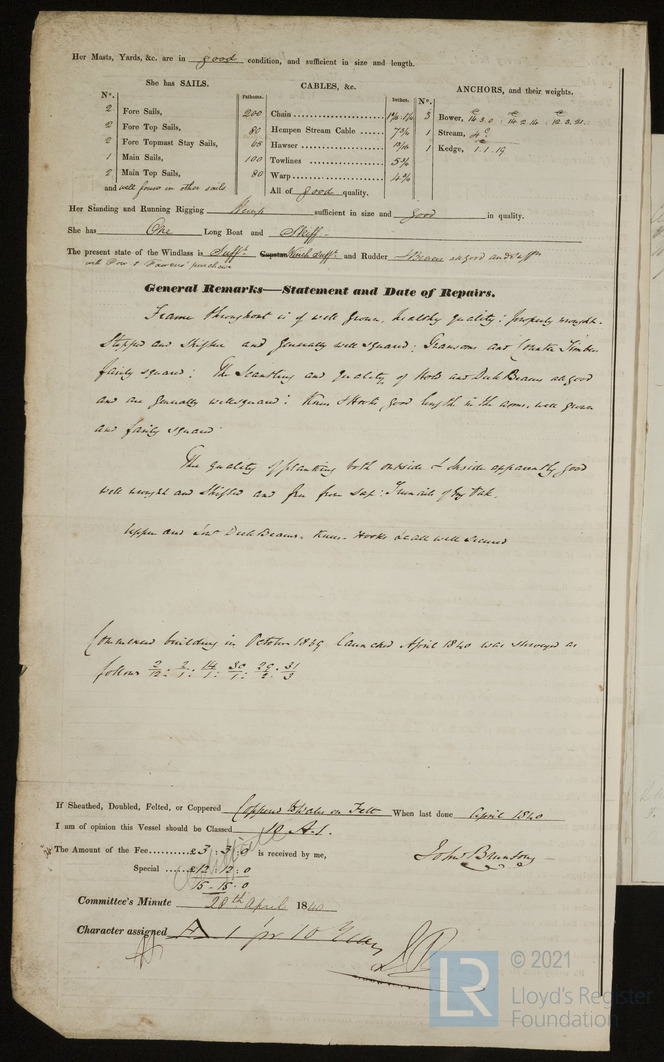 Her Masts, Yards, &c. are in good condition, and sufficient in size and length.
She has SAILS.
CABLES, &c.
ANCHORS, and their weights.
No.
Fathoms.
Inches.
No.
2 Fore Sails,
2 Fore Top Sails,
2 Fore Topmast Stay Sails,
1 Main Sails,
2 Main Top Sails,
and well found in other sails
200 Chain
80 Hempen Stream Cable 7¾
68 Hawser
100 Towlines
80 Warp
All of good quality.
3 Bower, 14.3.0 : 14.2.14 : 12.3.21
1 Stream, 4
1 Kedge, 1.1.19
Her Standing and Running Rigging Hemp sufficient in size and good in quality.
She has One Long Boat and Skiff
The present state of the Windlass is Sufft Capstan Winch Sufft and Rudder good and
with Pow & purchase
General Remarks—Statement and Date of Repairs.
Frame throughout is of well grown, healthy quality : properly wrought.
Stopped and Shifted and generally well squared ; Transoms and Counter Timbers
fairly squared : The Scantling and quality of Hold and Deck Beams all good
and are generally well squared : Knees & Hooks, good length in the arms, well grown
and fairly squared
The quality of planking both outside & Inside apparently good
well wrought and Shifted and free from Sap : Treenails of dry Oak.
Upper and Low Deck Beams, Knees, Hooks &c all well secured
Commenced building in October 1839 Launched April 1840 was surveyed as
follows 2/12 : 2/1 : 14/1 : 30/1 : 29/2 : 31/3
If Sheathed, Doubled, Felted, or Coppered Coppered on Felt When last done April 1840
I am of opinion this Vessel should be Classed 10 A.1.
The Amount of the Fee £3 : 3 : 0 is received by me,
Special £12 : 12 : 0
15 . 15 . 0
John Brunton
Committee's Minute 28th April 1840
Character assigned A 1 for 10 Years
LR
© 2021
Lloyd's Register
Foundation